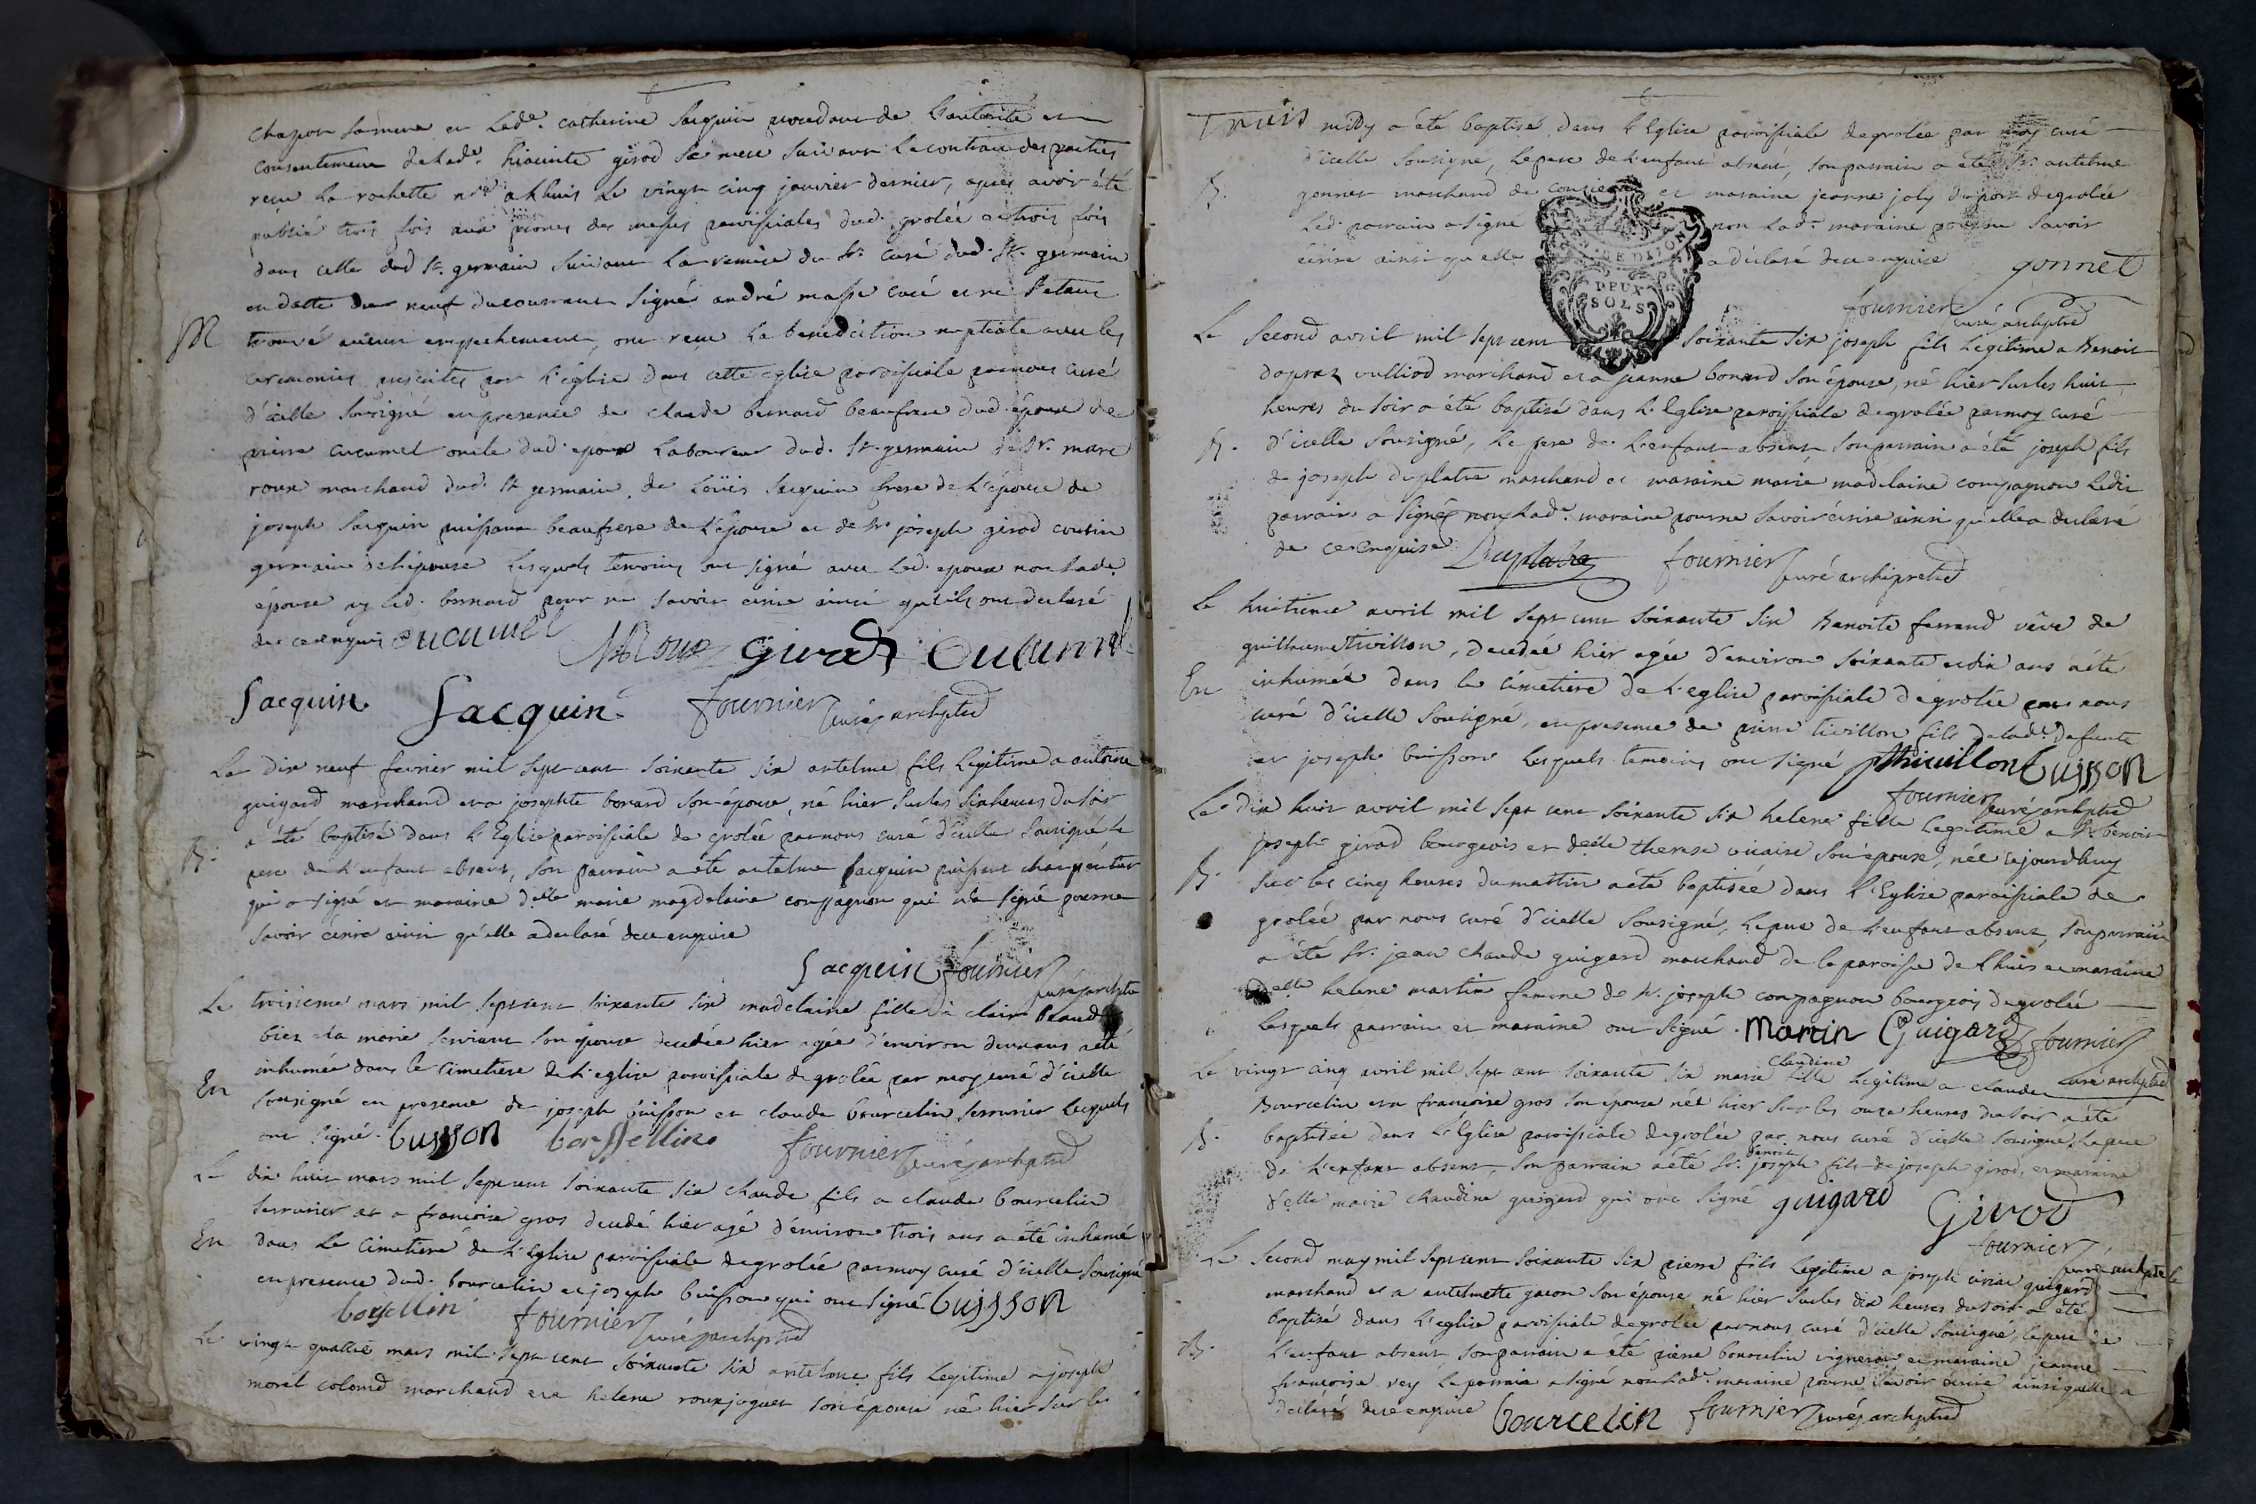 chapot sa mere et lade. catherine Jacquin procedant de l'autorité et
consentement de lade. hiacinte girod sa mere suivant le contrat des parties
recu la rochette nre a lhuis le vingt cinq janvier dernier, apres avoir été
publié trois fois aux prones des messes paroissiales dud. grolée et trois fois
dans celle dud st. germain suivant la remise du sr. curé dud. st. germain
en datte du neuf du courant signé andré curé et ne s'etant
M trouvé aucun empechement, ont recu la benediction nuptiale avec les
ceremonies prescrites par l'église dans cette eglise paroissiale par nous curé
d'icelle sousigné en presence de claude bernard beaufrere dud. époux de
pierre cucumel oncle dud. epoux laboureur dud. st. germain de sr. marc
roux marchand dud. st germain, de loüis Jacquin frere de l'épouse de
joseph Jacquin puissant beaufrere de l'épouse et de sr. joseph girod cousin
germain de l'épouse lesquels temoins ont signé avec led. epoux non lade.
épouse ny led. bernard pour ne savoir ecrire ainsi qu'ils ont declaré
de ce enquis cucumel MRoux girod Cucumel
Jacquin Jacquin fournier curé archiptre
Le dix neuf fevrier mil sept cent soixante six antelme fils legitime a antoine
guigard marchand et a josephte bonard son épouse, né hier sur les six heures du soir
B. a été baptisé dans l'Eglise paroissiale de grolée par nous curé d'icelle sousigné le
pere de l'enfant absent, son parrain a été antelme Jacquin puissant charpentier
qui a signé et maraine delle marie magdelaine compagnon qui n'a signé pour ne
savoir ecrire ainsi qu'elle a declaré de ce enquise
Jacquin fournier curé archiptre
Le troisieme mars mil sept cent soixante six madelaine fille a clair
et a marie servant son épouse decedée hier agée d'environ deux ans a été
En inhumée dans le cimetiere de l'eglise paroissiale de grolée par moy curé d'icelle
sousigné en presence de joseph buisson et claude bourcelin serrurier lesquels
ont signé. buisson borssellin fournier curé archiptre
Le dix huit mars mil sept cent soixante six claude fils a claude bourcelin
serrurier et a francoise gros decedé hier agé d'environ trois ans a été inhumé
En dans le cimetiere de l'Eglise paroissiale de grolée par moy curé d'icelle sousigné
en presence dud. bourcelin et joseph buisson qui ont signé buisson
borsellin fournier curé archiptre
Le vingt quatre mars mil sept cent soixante six antelme fils legitime a joseph
morel colomb marchand et a helene roux joguet son épouse né hier sur les
Trois midy a été baptisé dans l'Eglise paroissiale de grolée par moy curé
d'icelle sousigné, le pere de l'enfant absent, son parrain a été sr. antelme
B. gonnet marchand de et maraine jeanne joly du port de grolée
led. parrain a signé non lade. maraine pour ne savoir
écrire ainsi qu'elle a déclaré de ce enquise gonnet
DE DIJON
DEUX
SOLS
fournier curé archiptre
Le second avril mil sept cent soixante six joseph fils legitime a Benoit
vulliod marchand et a jeanne bonard son épouse, né hier sur les huit
heures du soir a été baptisé dans l'Eglise paroissiale de grolée par moy curé
B. d'icelle sousigné, le pere de l'enfant absent son parrain a été joseph fils
de joseph duplatre marchand et maraine marie madelaine compagnon ledit
parrain a signé non lade. maraine pour ne savoir écrire ainsi qu'elle a declaré
de ce enquise Duplatre fournier curé archipretre
Le huitieme avril mil sept cent soixante six Benoite ferrand veve de
guillaume tivillon, decedée hier agée d'environ soixante et dix ans a été
En inhumée dans le cimetiere de l'eglise paroissiale de grolée par nous
curé d'icelle sousigné, en presence de pierre tivillon fils de lade. defunte
et joseph buisson lesquels temoins ont signé pthivillon buisson
fournier curé archiptre
Le dix huit avril mil sept cent soixante six helene fille legitime a sr. benoit
joseph girod bourgeois et delle therese vicaire son épouse, née ce jourdhuy
B. sur les cinq heures du mattin a été baptisée dans l'Eglise paroissiale de
grolée par nous curé d'icelle sousigné, le pere de l'enfant absent, son parrain
a été sr. jean claude guigard marchand de la paroisse de lhuis et maraine
delle helene martin femme de sr. joseph compagnon bourgeois de grolée
lesquels parrain et maraine ont signé. Martin Guigard fournier
curé archiptre
Le vingt cinq avril mil sept cent soixante six marie claudine fille legitime a claude
Bourcelin et a francoise gros son epouse née hier sur les onze heures du soir a été
B. baptisée dans l'Eglise paroissiale de grolée par nous curé d'icelle sousigné, le pere
de l'enfant absent, son parrain a été sr. benoit joseph fils de joseph girod, et maraine
delle marie claudine guigard qui ont signé guigard Girod
fournier curé archiptre
Le second may mil sept cent soixante six pierre fils legitime a joseph guigard
marchand et a antelmette gacon son épouse né hier sur les dix heures du soir a été
baptisé dans l'eglise paroissiale de grolée par nous curé d'icelle sousigné, le pere de
B. l'enfant absent son parrain a été pierre bourcelin vigneron et maraine jeanne
francoise rey le parrain a signé non lade. maraine pour ne savoir écrire ainsi quelle a
declaré de ce enquise bourcelin fournier curé archiptre